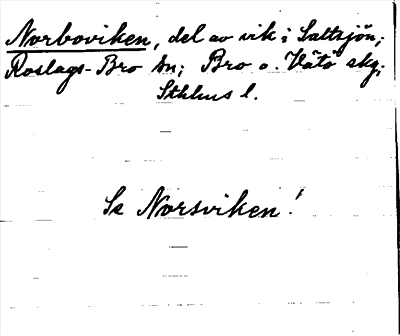 Norboviken, del av vik i Saltsjön;
Roslags-Bro sn; Bro o. Vätö skg;
Sthlms l.
Se Norsviken!